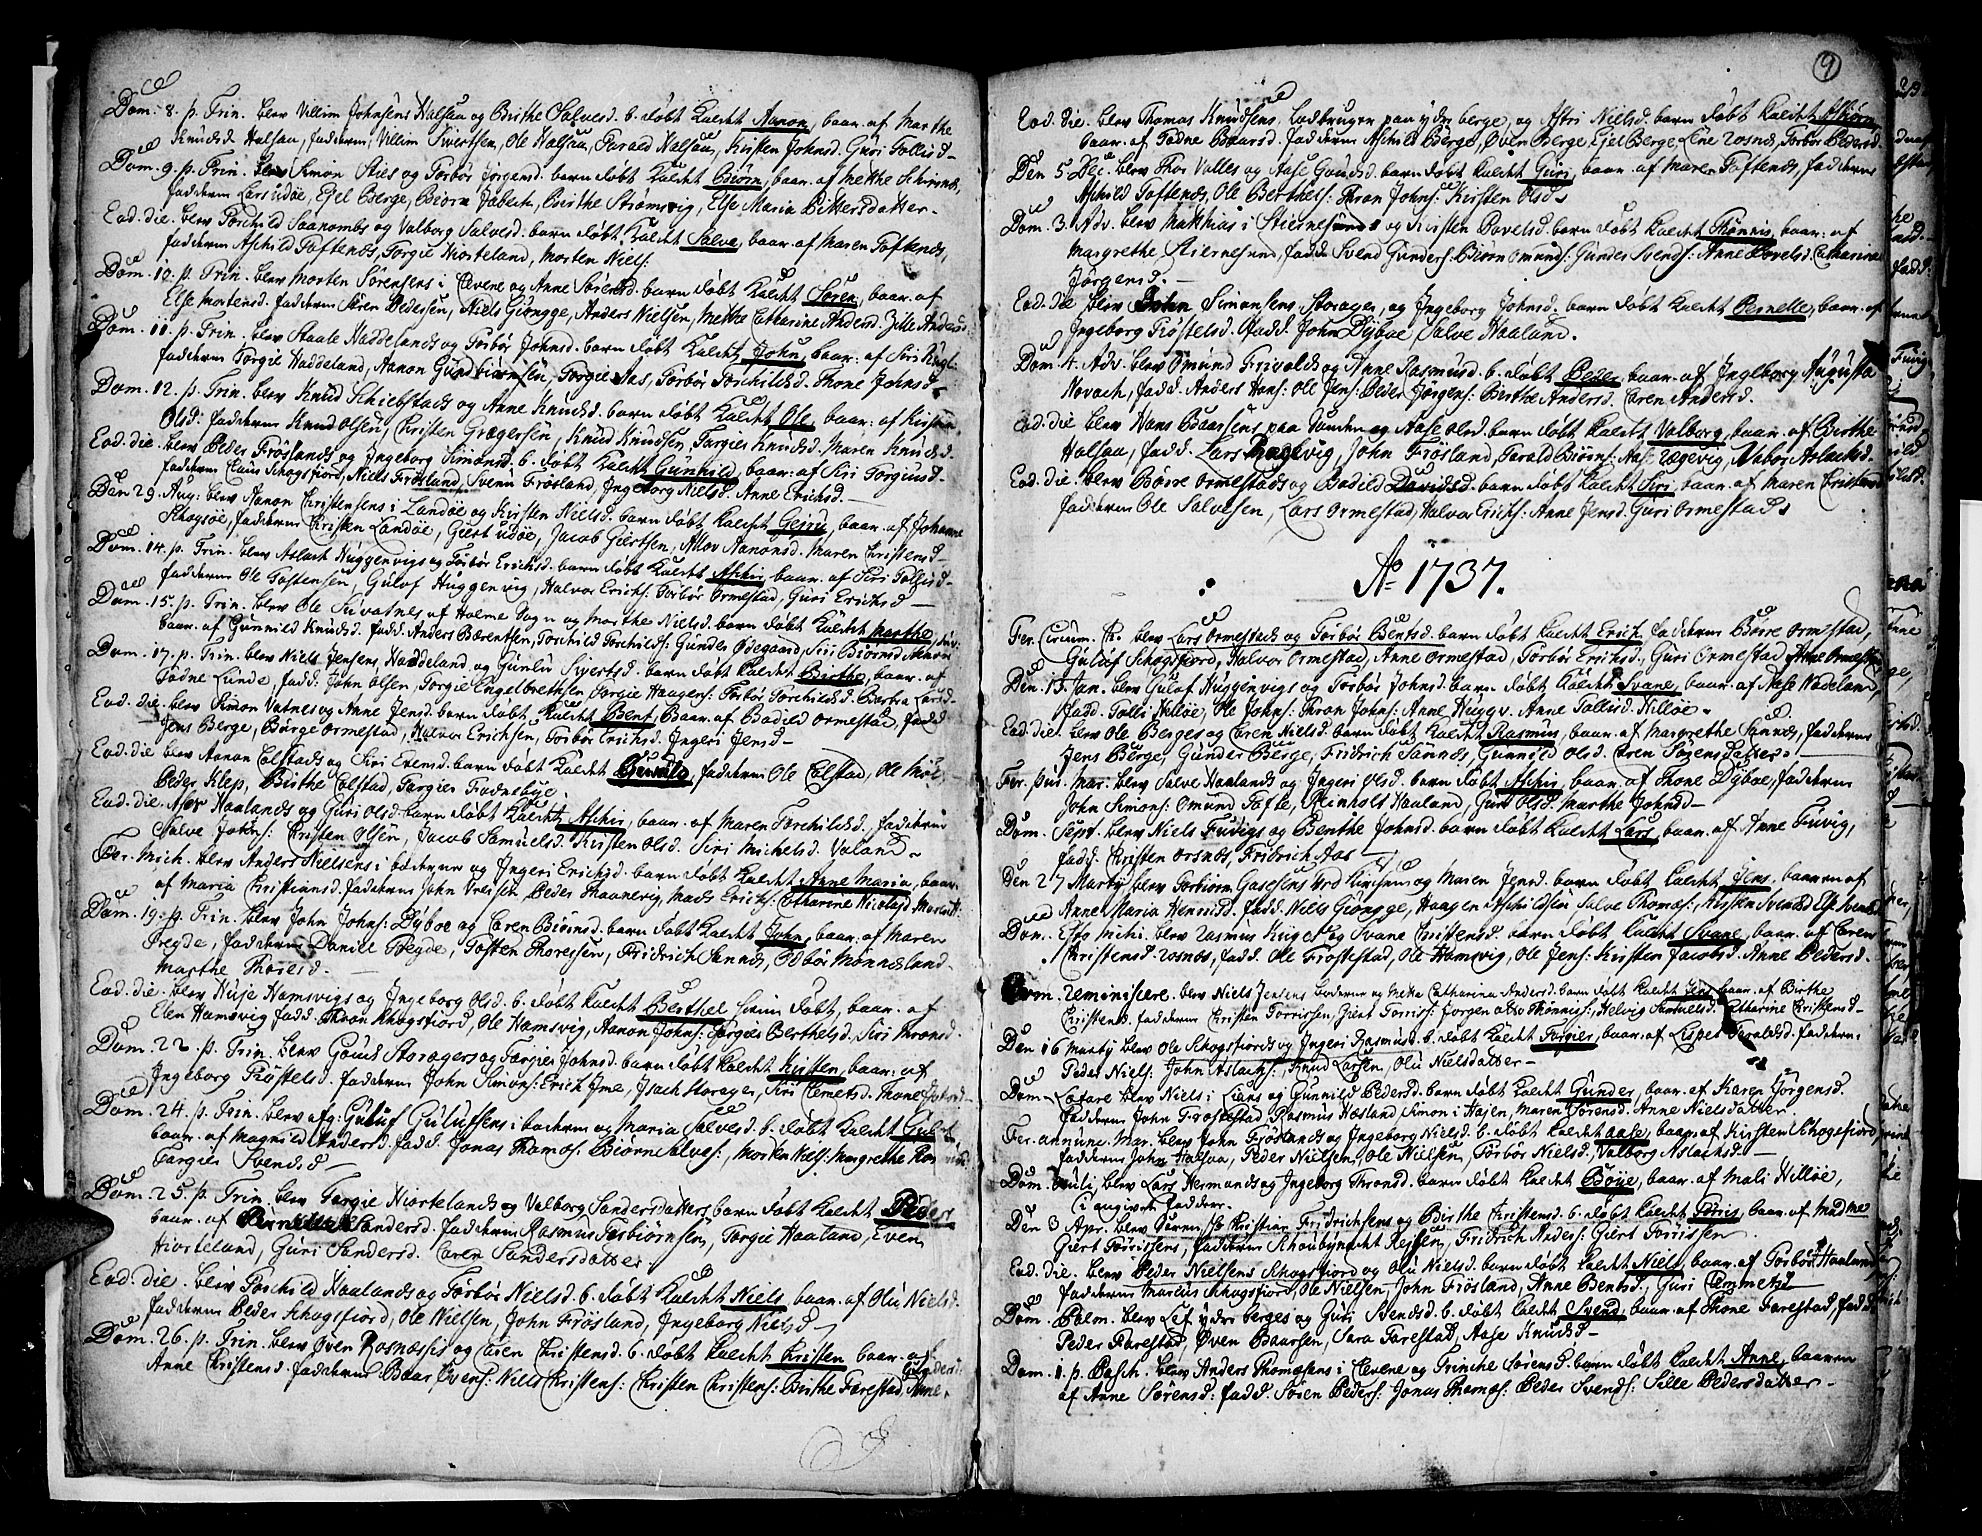 Dom. 8. p. Trin. blev Villim Johnsens Halsaa og Birthe Salvesd. b. døbt kaldet Aanon, baar. af Marthe
Knudsd. Halsaa, fadderne Villim Sivertsen, Ole Halsaa, Tarald Halsaa, Kirsten Johnsd. Guri Tollisd.
Dom. 9. p. Trin. blev Simon Sties og Torbør Jørgensd. barn døbt kaldet Biørn, baar. af Mette
fadderne Lars udøe, Ejel Berge, Biørn Jabech, Birthe Strømsvig, Else Maria Pittersdatter.
Eod. die. blev Torchild Saanombs og Valborg Salvesd. barn døbt kaldet Salve, baar. af Maren Toftenes,
fadderne Aschild Toftenes, Torgie Hiorteland, Morten Niels:
Dom. 10. p. Trin. blev Morten Sørensens i Clevene og Anne Sørensd. barn døbt kaldet Søren, baar. af
Else Mortensd. fadderne Søren Pedersen, Niels Giøngge, Anders Nielsen, Mette Catharine Andersd. Zille Andersd:
Dom. 11. p. Trin. blev Staale Haddelands og Torbør Johnsd. barn døbt kaldet John, baar: af Siri
fadderne Torgie Haddeland, Aanon Gundbiørnsen, Torgie Aas, Torbør Torchildsd. Thone Johnsd.
Dom. 12. p. Trin. blev Knud Schiebstads og Anne Knudsd. barn døbt kaldet Ole, baar: af Kirsten
Olsd: fadderne Knud Olsen, Christen Gregersen, Knud Knudsen Targier Knudsd. Maren Knudsd.
Eod. die. blev Peder Frøslands og Ingeborg Simonsd. b. døbt kaldet Gunnild, baar: af Siri Torgiusd.
fadderne Claus Schogsfiord, Niels Frøsland, Svenn Frøsland, Ingeborg Nielsd. Anne Erichsd.
Den 29. Aug. blev Aanon Christensens i Landøe og Kirsten Nielsd. barn døbt kaldet Gejru, baar. af Johanne
Schogsøe, fadderne Christen Landøe, Giert udøe, Jacob Giertsen, Allov Aanonsd. Maren Christensd.
Dom. 14. p. Trin. blev Aslach Huggenvigs og Torbør Erichsd. barn døbt kaldet Aschir, baar. af Siri Tolfisd.
fadderne Ole Tostensen, Gulof Huggenvig, Halvor Erichs: Torbør Ormestad, Guri Erichsd.
Dom. 15. p. Trin. blev Ole Sivatnes af Holme Sogn og Marthe Nielsd. barn døbt kaldet Marthe
baar. af Gunnild Knudsd. fadd. Anders Bærentsen, Torchild Torchilds: Gunder Ødegaard, Siri Biørnsd.
Dom. 17. p. Trin. blev Niels Jensens, Haddeland og Gunlu Syvertsd. barn døbt kaldet Birthe, baar. af
Todne Lunde, fadd: John Olsen, Torgie Engelbrethsen Torgie Haagens: Torbør Torchildsd. Barbra Larsd.
Eod. die. blev Simon Vatnes og Anne Jensd. barn døbt kaldet Bent, Baar. af Bodild Ormestad, fadd
Jens Berge, Børge Ormestad, Halvor Erichsen, Torbør Erichsd. Ingeri Jensd.
Eod: die blev Aanon Colstads og Siri Evensd. barn døbt kaldet Gunnild, fadderne Ole Colstad, Ole
Peder Klep, Birthe Colstad, Targier Frodnebye.
Eod: die. Haalands og Guri Olsd. barn døbt kaldet Aschir, baar. af Maren Torchildsd. fadderne
Salve Johns: Christen Olsen, Jacob Samuelsd. Kirsten Olsd. Siri Michelsd. Valand
Fer. Mich. blev Anders Nielsens i backerne og Ingeri Erichsd. barn døbt kaldet Anne Maria, baar:
af Maria Christiansd. fadderne John Vreisen Peder Skaanevig, Mads Erichs: Catharine Nicolasd.
Dom. 19. p. Trin. blev John Johns: Dyboe og Caren Biørnsd. barn døbt kaldet John, baar. af Maren
Pregde, fadderne Daniell Tregde, Tosten Thoressen, Fridrich Sannes, Torbør Monnesland
Marthe Thoresd.
Eod. die. blev Huje Hamsvigs og Ingeborg Olsd. b. døbt kaldet Berthel hiem døbt, baar. af
Elen Hamsvig fadd Thron Schogsfiord, Ole Hamsvig, Aanon Johns: Targier Berthelsd. Siri Thronsd.
Dom. 22. p. Trin. blev Goud Storagers og Targier Johnsd. barn døbt kaldet Kisten, baar: af
Ingeborg Trøstelsd. fadderne John Simons: Erich Ime, Isach Storager, Siri Clemetsd. Thone
Dom. 24. p. Trin. blev afg: Guluf Gulufsens i backerne og Maria Salvesd. b. døbt kaldet Guluf,
baar. af Magnild Andersd. fadd. Jonas Thomes: Biørne halves: Morten Niels: Margrethe
Targier Svendsd
Dom. 25. p. Trin. blev Targie Hiortelands og Valborg Sandersdatters barn døbt kaldet Peder
baar. af Pernelle Sandersd. fadderne Rasmus Torbiørnsen, Torgie Haaland, Even
Hiorteland, Guri Sandersd. Caren Sandersdatter
Eod: die. blev Torchild Haalands og Torbør Nielsd. b. døbt kaldet Niels, baar. af Olu Nielsd.
fadderne Peder Schogsfiord, Ole Nielsen, John Frøsland, Ingeborg Nielsd.
Dom. 26. p. Trin. blev Øven Rosnæssis og Caren Christensd. b. døbt kaldet Christen, baar. af
Anne Christensd. fadderne Baar Øvens: Niels Christens: Christen Christens: Birthe Farestad, Anne
9
Eod. die. blev Thomas Knudsens, Ladbruger paa ydre berge, og Astri Nielsd. barn døbt kaldet
baar. af Todne Baarsd. fadderne Aschild Berge, Øven Berge Ejel Berge, Lene Rosnes, Torbør Pedersd.
Den 5 Dec. blev Thor Valles og Aase Goudsd. barn døbt kaldet Guri, baar. af Maren Toftenes, fadderne
Aschild Toftenes, Ole Berthels: Thron Johns: Kirsten Olsd.
Dom. 3. Adv. blev Matthias i Stiernesund og Kirsten Povelsd. barn døbt kaldet Thønnis, baar: af
Margrethe Stiernesund, fadd: Svend Gunders: Biørn Omunds: Gunder Svends: Anne Povelsd. Catharina
Jørgensd.
Eod. die blev John Simonsens, Storager, og Ingeborg Johnsd. barn døbt kaldet Pernelle, baar. af
Ingeborg Trøstelsd. fadd: John Dyboe, Salve Haaland.
Dom. 4. Adv. blev Omund Trivolds og Anne Rasmusd. b. døbt Peder, baar. af Ingeborg Augusta
Novach, fadd: Anders Hans: Ole Jens: Peder Jørgens: Birthe Andersd. Caren Andersd.
Eod: die blev Hans Baarsens paa Sanden og Aase Olsd. barn døbt kaldet Valborg, baar. af Birthe
Halsaa, fadd: Lars Ragevig, John Frøsland, Tarald Biørn: Aase Ragevig, Aabor Aslachsd.
Eod: die blev Børre Ormestads og Bodild Davidsd. barn døbt kaldet Siri, baar. af Maren
fadderne Ole Salvesen, Lars Ormestad, Halvor Erichs: Anne Jensd. Guri Ormestad.
Ao 1737.
Fer. Circum. Ch. blev Lars Ormestads og Torbør Bentsd. barn døbt kaldet Erich, fadderne Børre Ormestad,
Guluf Schogsfiord, Halvor Ormestad, Anne Ormestad, Torbør Erichsd., Guri Ormestad
Den 13. Jan. blev Gulof Huggenvigs og Torbør Johnsd. barn døbt kaldet Svane, baar. af Aase Nodeland,
fadd. Tolli Hilløe, Ole Johns: Thron Johns: Anne Huggv. Anne Tollisd. Hilløe.
Eod: die. blev Ole Berges og Caren Nielsd. barn døbt kaldet Rasmus, baar. af Margrethe Sannes, fadderne
Jens Berge, Gunder Berge, Fridrich Sannes, Gunnild Olsd. Caren Sørensdatter.
Fer. Pur. Mar. blev Salve Haalands og Ingeri Olsd. barn døbt kaldet Aschir baar. af Thone Dyboe, fadderne
John Simons: Omund Tofte, Reinholt Haaland, Guri Olsd. Marthe Johnsd.
Dom. Sept. blev Niels Fuvigs og Benthe Johnsd. barn døbt kaldet Lars, baar. af Anne Fuvig,
fadd: Christen Orsnes, Fridrich Aas
Den 27 Martij blev Torbiørn Gasesens ved Kirchen og Maren Jensd. barn døbt kaldet Jens. baaren af
Anne Maria Henrisd. fadd: Niels Giøngge, Haagen Aschildsen Salve Thomæs: Kirsten Svensd
Dom. Esto mihi. blev Rasmus og Svane Christensd. barn døbt kaldet Svane, baar. af Caren
Christensd. Rosnes, fadd: Ole Trostestad, Ole Hamsvig, Ole Jens: Kirsten Jacobsd. Anne Pedersd.
Dom. Reminisere. blev Niels Jensens backerne og Mette Catharina Andersd. barn døbt kaldet Jens baar: af Birthe
Christensd. fadderne Christen Torrissen, Giert Torriss: Jørgen Otto Thønnis: Helvig Samuelsd. Catharine Christensd
Den 16 Martij blev Ole Schogsfiords og Ingeri Rasmusd. b. døbt kaldet Torgier, baar: af Lisbet Taraldsd. fadderne.
Peder Niels: John Aslachs: Knud Larsen, Olu Nielsdatter
Dom Lætare blev Niels i Lians og Gunnild Pedersd. barn døbt kaldet Gunder baar: af Karen Jørgensd.
fadderne John Trostestad Rasmus Hæsland, Simon i Hasen, Maren Sørensd. Anne Nielsdatter.
Fer. annunc. Mar. blev John Frøslands og Ingeborg Nielsd. b. døbt kaldet Aase, baar: af Kirsten Schogsfiord
fadderne John Halsaa, Peder Nielsen, Ole Nielsen, Torbør Nielsd, Valborg Aslachsd.
Dom. blev Lars Hermands og Ingeborg Thronsd. barn døbt kaldet Bøye, baar. af Mali Hilløe,
Ej angivet fadder.
Den 3 Apr. blev Søren Christian Fridrichsens og Birthe Christensd. b. døbt kaldet Torris, baar: af Madme
Giert Torrissens, fadderne Schoubynecht Ressen, Fridrich Anders: Giert Torrissen
Eod. die. blev Peder Nielsens Schogsfiord og Olu Nielsd. barn døbt kaldet Niels, baar. af Torbør Haaland
fadderne Marcus Schogsfiord, Ole Nielsen, John Frøsland, Anne Bentsd. Guri Clemmetsd
Dom. Palm. blev Lef ydre berges og Guri Svendsd. b. døbt kaldet Svend, baar. af Thone Farestad, fadd:
Peder Farestad, Øven Baarsen, Sara Farestad, Aase Knudsd
Dom. 1. p. Pasch. blev Anders Thomesens i Clevene og Trinche Sørensd. barn døbt kaldet Anne, baaren
af Anne Sørensd: fadd: Søren Peders: Jonas Thomæs: Peder Svends: Sille Pedersdatter